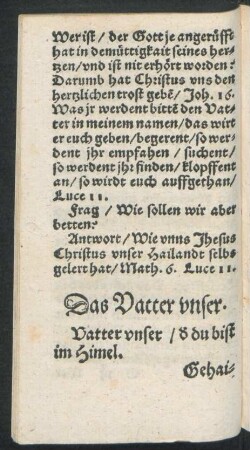 Wer ist / der Gott je angerüfft
hat in demüttigkait seines her-
tzen / vnd ist nit erhört worden?
Darumb hat Christus vns den
hertzlichen trost gebẽ / Joh. 16.
Was jr werdent bittẽ den Vat-
ter in meinem namen / das wirt
er euch geben / begerent / so wer-
dent jhr empfahen / suchent /
so werdent jhr finden / klopffent
an / so wirdt euch auffgethan /
Luce 11.
Frag / Wie sollen wir aber
betten?
Antwort / Wie vnns Jhesus
Christus vnser Hailandt selbs
gelert hat / Math. 6. Luce 11.
Das Vatter vnser.
Vatter vnser / d̕ du bist
im Himel.
Gehai-